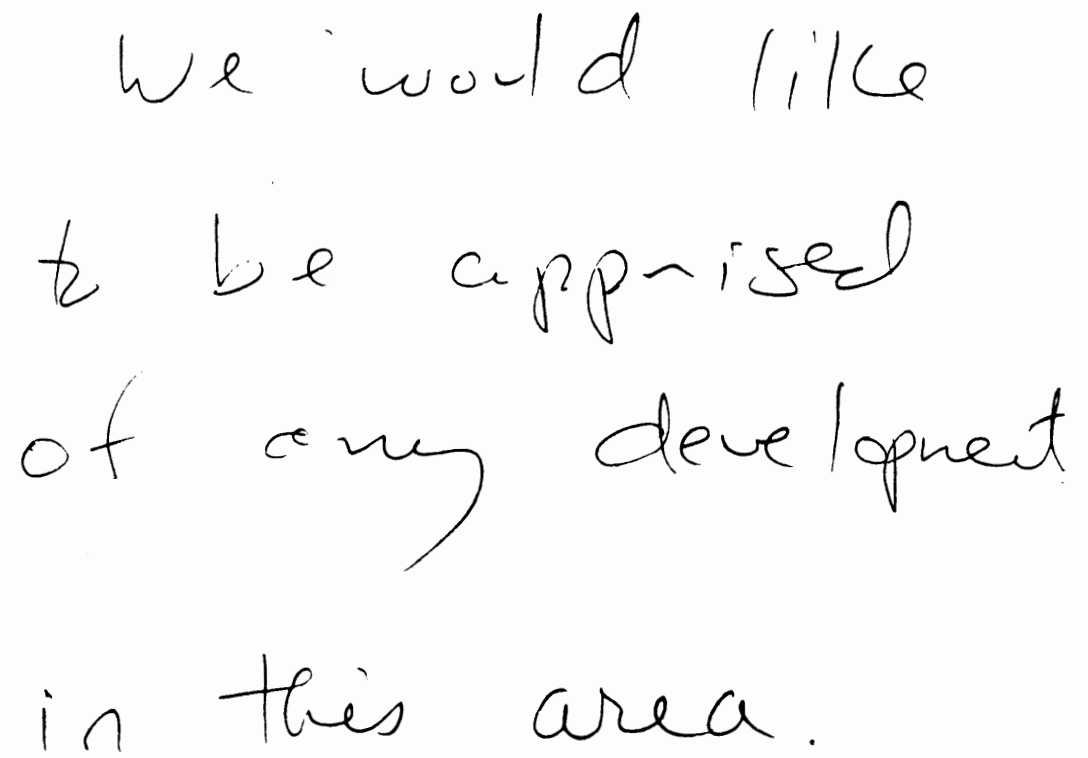 We would like
to be apprised
of any development
in this area.